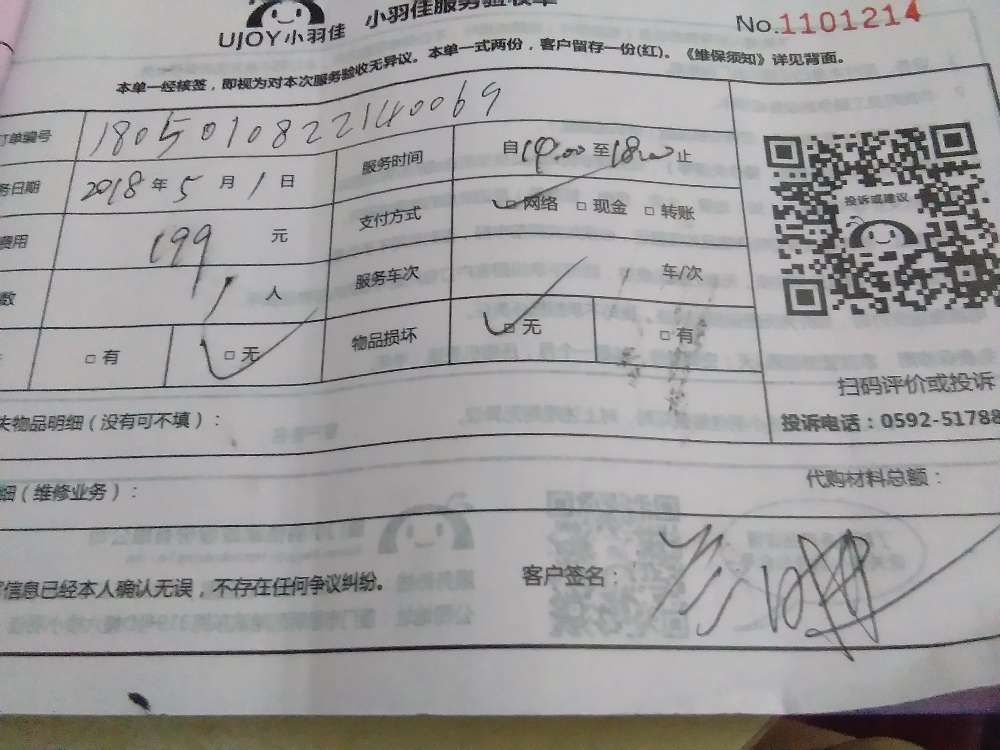 UJOY小羽佳 小羽佳服务验收单
No.1101214
本单一经核签，即视为对本次服务验收无异议。本单一式两份，客户留存一份(红)。《维保须知》详见背面。
订单编号 1805010822140069
务日期 2018年5月1日 服务时间 自14:00至18:00止
费用 199元 支付方式 □网络 □现金 □转账
数 1人 服务车次 车/次
□有 □无 物品损坏 □无 □有
投诉或建议
扫码评价或投诉
投诉电话：0592-51788
失物品明细（没有可不填）：
细（维修业务）： 代购材料总额：
信息已经本人确认无误，不存在任何争议纠纷。 客户签名：